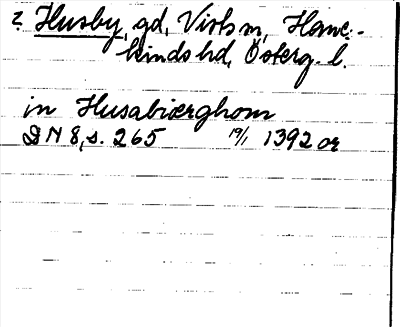 ? Husby, gd, Viels sn, Hane-
kinds hd, Österg. l.
in Husabiærghom
DN 8, s. 265 19/1 1392 or